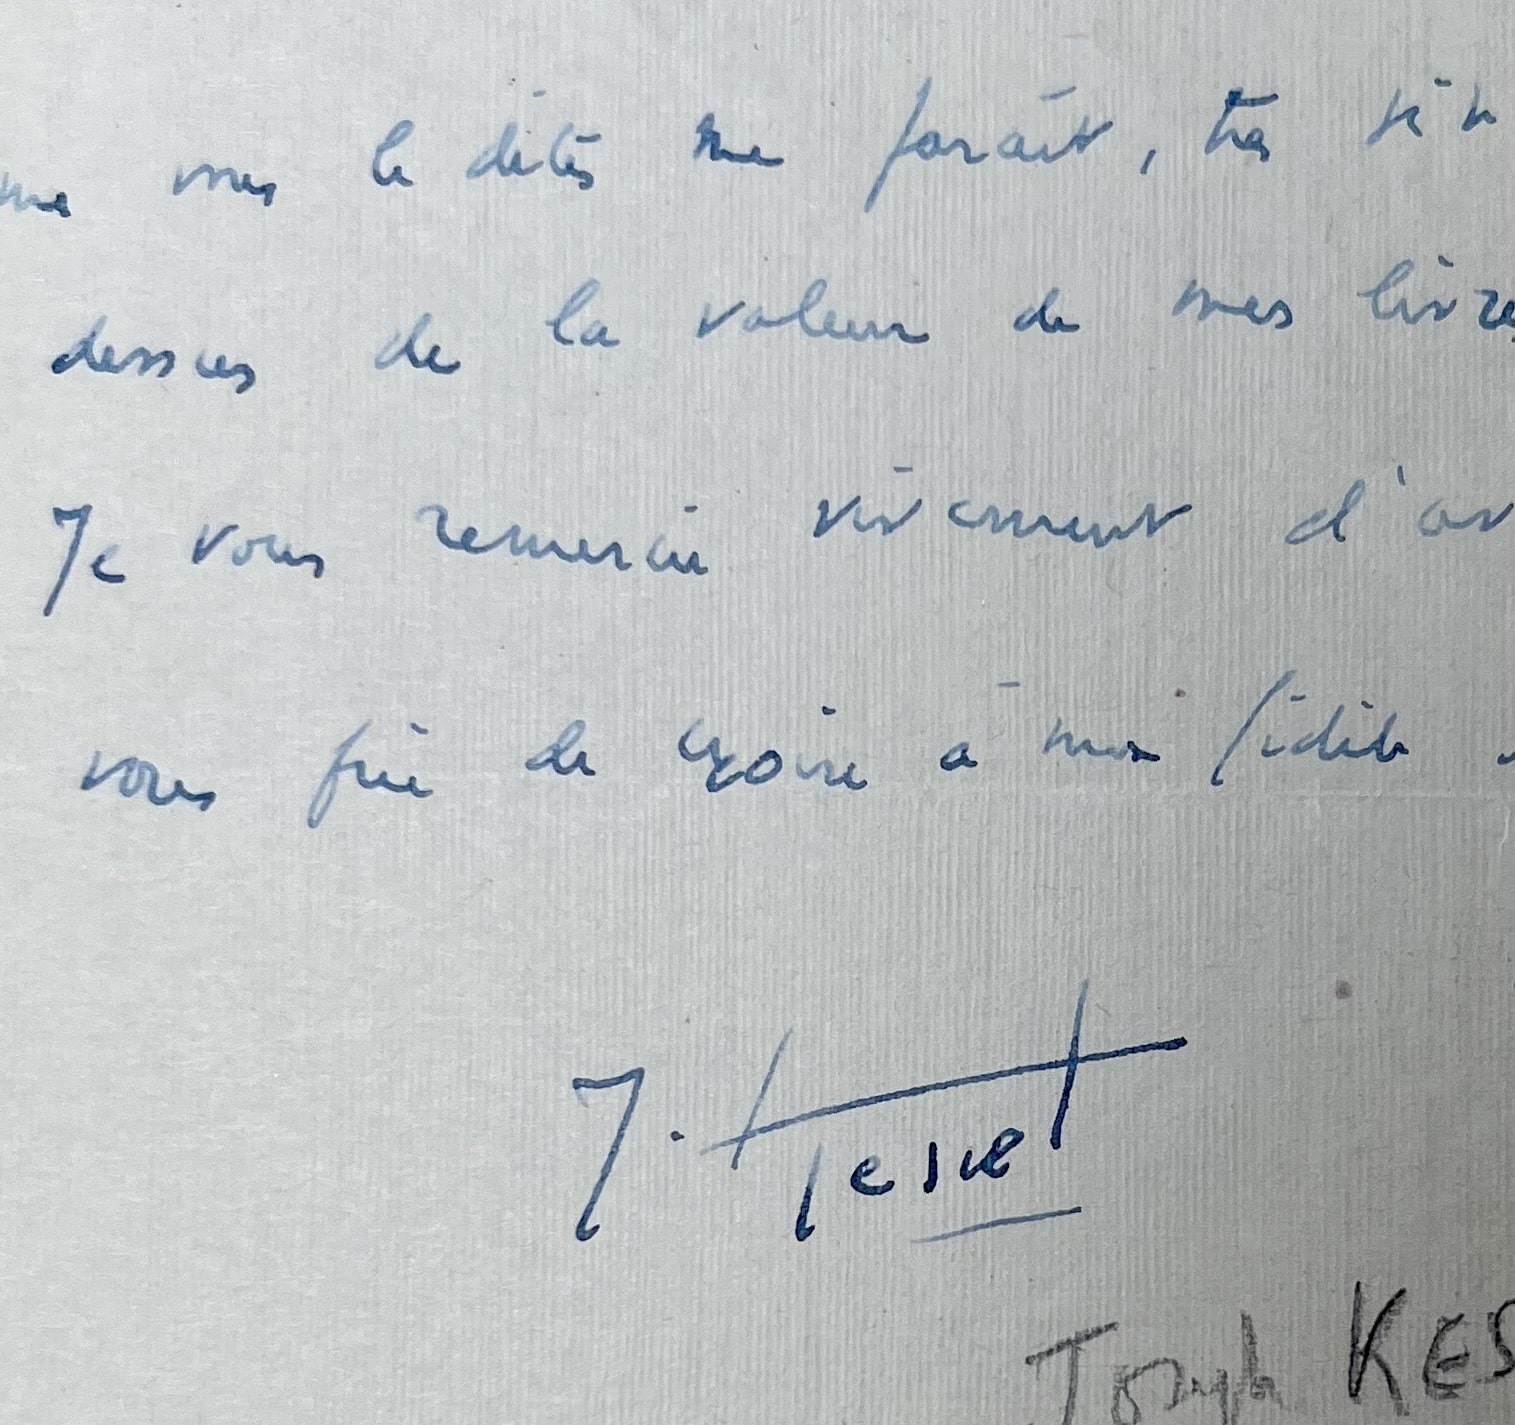 vous le dites me paraît, très
dessus de la valeur de mes livres
Je vous remercie vivement d'av
vous prie de croire à mon fidèle
J. Kessel
Joseph KES